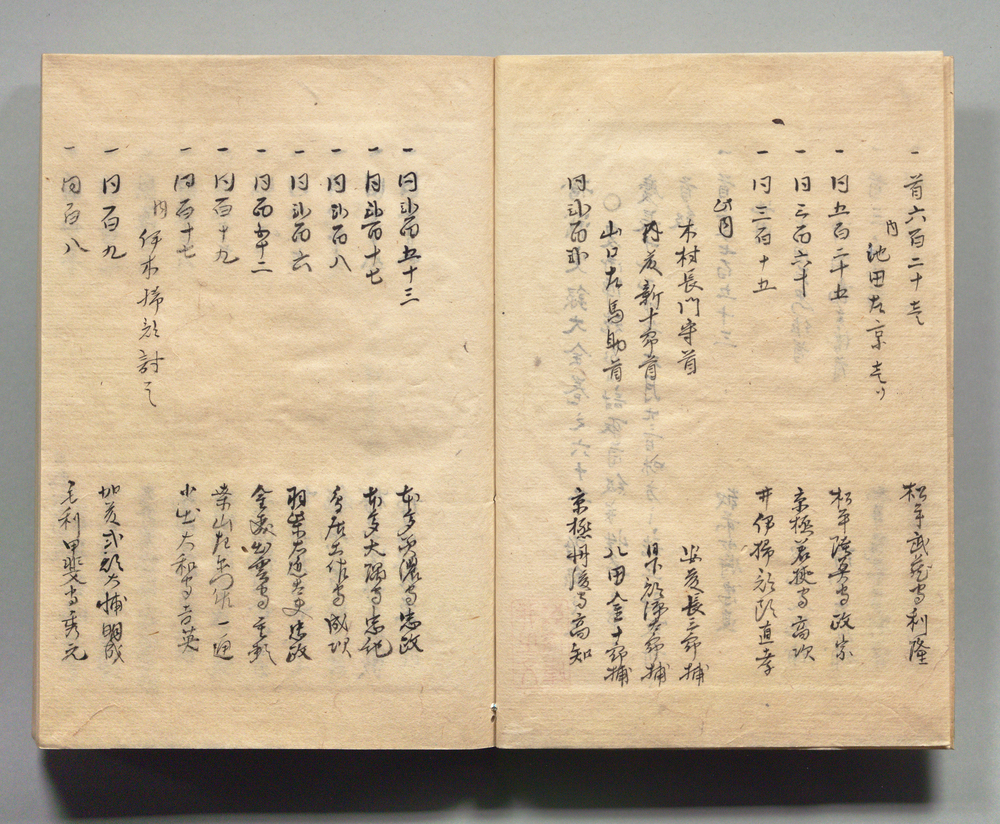 一 首六百二十壱 松平武蔵守利隆
内 池田左京壱ツ
一 同五百二十五 松平陸奥守政宗
一 同三百六十 京極若狭守高次
一 同三百十五 井伊掃部頭直孝
此内
木村長門守首 安藤長三郎捕
内藤新十郎首 日下部澤右郎捕
山口左馬助首 八田金十郎捕
同弐百弐 京極丹後守高知
一 同弐百五十三 本多美濃守忠政
一 同弐百十七 本多大隅守忠純
一 同弐百八 鳥居土佐守成次
一 同弐百六 羽柴右近大夫忠政
一 同百五十二 金森出雲守重頼
一 同百十九 柴山左衛門佐一通
一 同百十七 小出大和守吉英
内 伊木掃部討之
一 同百九 加藤式部大輔明成
一 同百八 毛利甲斐守秀元